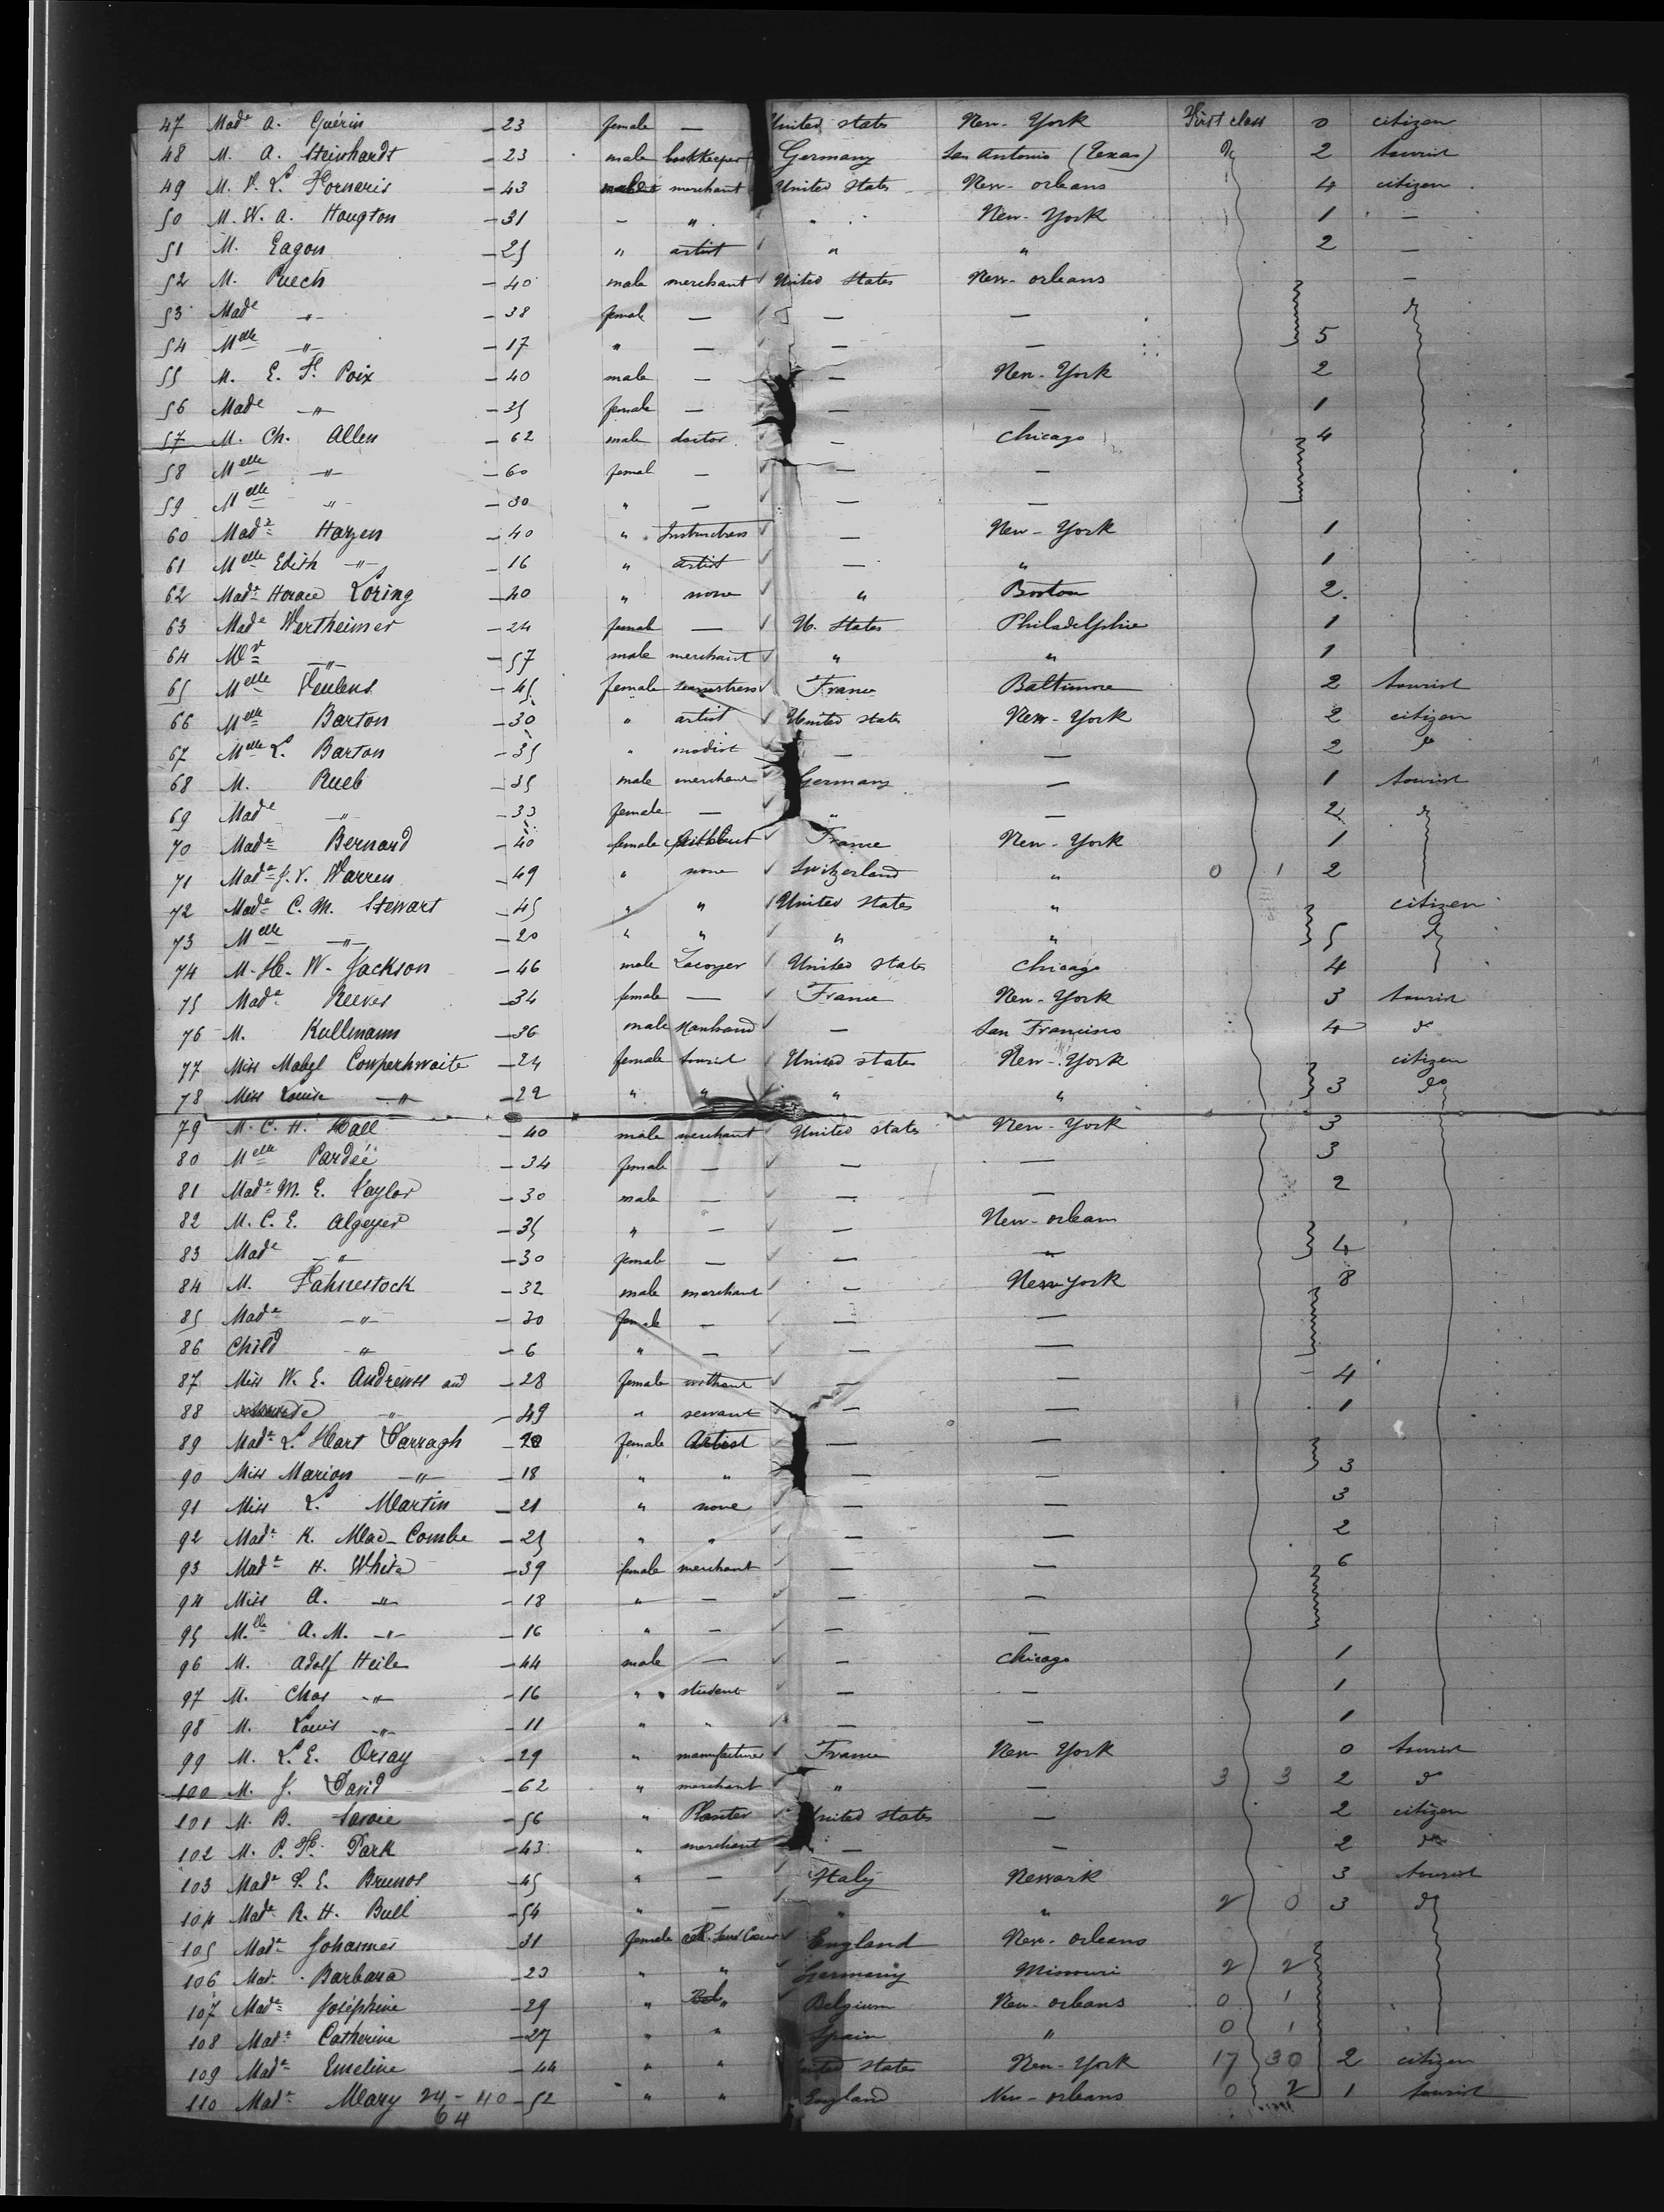 47 Made A. Guérin — 23 female — United States New-York First class 0 citizen
48 M. A. Steinhardt — 23 male bookkeeper Germany San Antonio (Texas) do 2 tourist
49 M. V. L. Fornaris — 43 male merchant United States New-orleans 4 citizen
50 M. W. A. Hougton — 31 — " " New-York 1 —
51 M. Eagon — 25 " artist " " 2 —
52 M. Puech — 40 male merchant United States New-orleans —
53 Made —"— — 38 female — — — do
54 Melle —"— — 17 " — — — 5
55 M. E. F. Poix — 40 male — — New-York 2
56 Made —"— — 35 female — — — 1
57 M. Ch. Allen — 62 male doctor — Chicago 4
58 Melle —"— — 60 femal — — —
59 Melle —"— — 30 " — — —
60 Made Hazen — 40 " Instructress — New-York 1
61 Melle Edith —"— — 16 " artist — " 1
62 Made Horace Loring — 40 " none " Boston 2
63 Made Wertheimer — 24 female — U. States Philadelphie 1
64 Mr —"— — 57 male merchant " " 1
65 Melle Feulens — 45 female seamstress France Baltimore 2 tourist
66 Melle Barton — 30 " artist United States New-York 2 citizen
67 Melle L. Barton — 35 " modist — — 2 do
68 M. Rueb — 35 male merchant Germany — 1 tourist
69 Made —"— — 33 female — " — 2 do
70 Made Bernard — 40 female France New-York 1
71 Made J. V. Warren — 49 " none Switzerland " 0 1 2
72 Made C. M. Stewart — 45 " " United States " citizen
73 Melle —"— — 20 " " " " 5 do
74 M. H. W. Jackson — 46 male Lawyer United States Chicago 4
75 Made Reeves — 34 female — France New-York 3 tourist
76 M. Kullmann — 36 male — San Francisco 4 do
77 Miss Mabel Cowperhwaite — 24 female tourist United States New-York citizen
78 Miss Louise —"— — 22 " " " " 3 do
79 M. C. H. Hall — 40 male merchant United States New-York 3
80 Melle Pardée — 34 female — — — 3
81 Made M. E. Taylor — 30 male — — — 2
82 M. C. E. Algeyer — 35 " — — New-orleans
83 Made —"— — 30 female — — —"— 4
84 M. Fahnestock — 32 male merchant — New York 8
85 Made —"— — 30 female — — —
86 Child —"— — 6 " — — —
87 Miss W. E. Andrews and — 28 female without — — 4
88 —"— — 49 " servant — — 1
89 Made L. Hart Darragh — female Artist — —
90 Miss Marion —"— — 18 " " — — 3
91 Miss L. Martin — 21 " none — — 3
92 Made K. Mac-Combe — 25 " " — — 2
93 Made H. White — 39 female merchant — — 6
94 Miss A. —"— — 18 " — — —
95 Mlle A. M. —"— — 16 " — — —
96 M. Adolf Heile — 44 male — — Chicago 1
97 M. Chas —"— — 16 " student — — 1
98 M. Louis —"— — 11 " " — — 1
99 M. L. E. Orsay — 29 " manufacturer France New York 0 tourist
100 M. J. David — 62 " merchant " — 3 3 2 do
101 M. B. Savoie — 56 " Planter United States — 2 citizen
102 M. P. H. Park — 43 " merchant — — 2 do
103 Made S. E. Brunot — 45 " — Italy Newark 3 tourist
104 Made R. H. Bull — 54 " — " " 2 0 3 do
105 Made Johannes — 31 female England New-orleans
106 Made Barbara — 23 " " Germany Missouri 2 2
107 Made Joséphine — 29 " " Belgium New-orleans 0 1
108 Made Catherine — 27 " " Spain " 0 1
109 Made Emeline — 44 " " United States New-York 17 30 2 citizen
110 Made Mary 24-40 — 52 " " England New-orleans 0 2 1 tourist
64